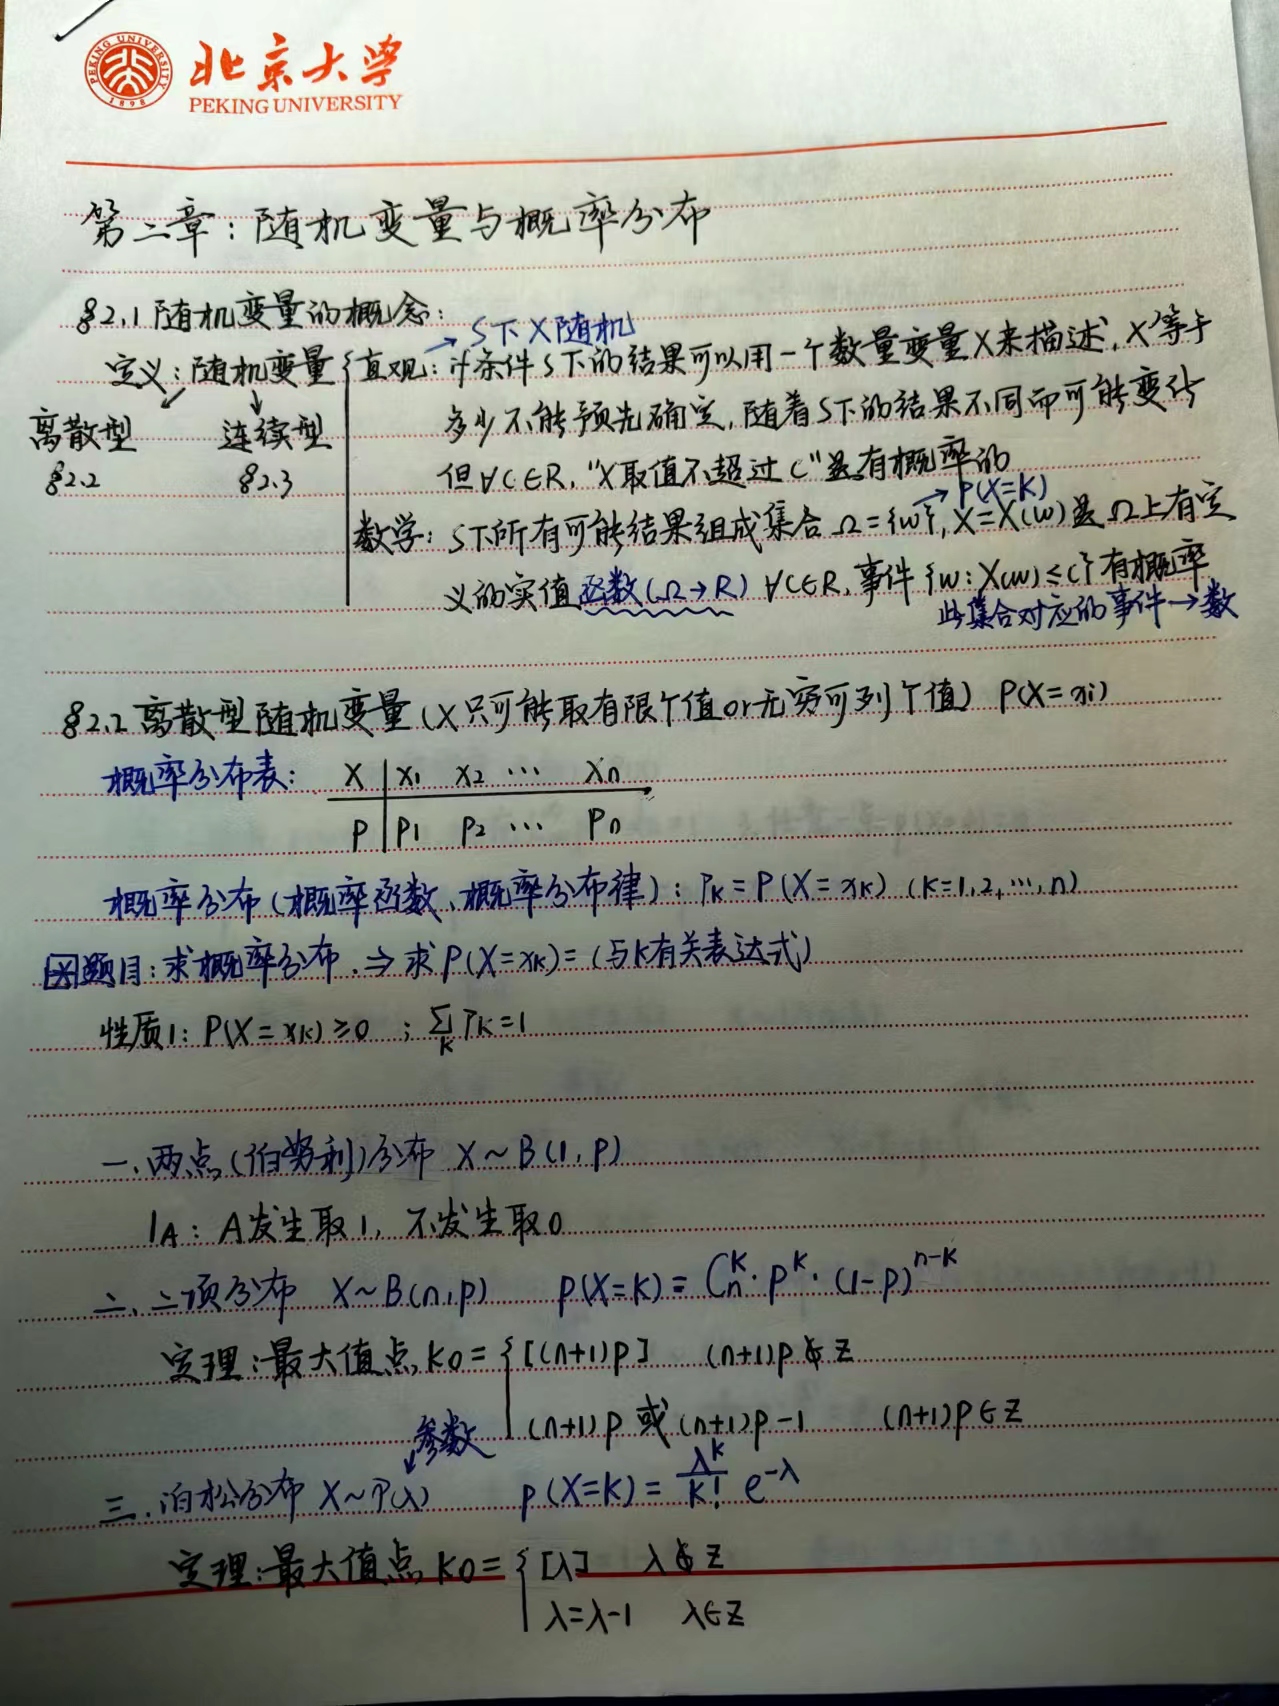 PEKING UNIVERSITY
1898
北京大学
PEKING UNIVERSITY
第二章：随机变量与概率分布
§2.1 随机变量的概念：
→ S下 X随机
定义：随机变量 { 直观：条件S下的结果可以用一个数量变量X来描述，X等于
离散型 连续型 多少不能预先确定，随着S下的结果不同而可能变化
§2.2 §2.3 但∀C∈R，“X取值不超过C”是有概率的
→ P(X=K)
数学：S下所有可能结果组成集合 Ω={w}，X=X(w)是Ω上有定
义的实值函数(Ω→R) ∀C∈R，事件{w：X(w)≤C}有概率
此集合对应的事件→数
§2.2 离散型随机变量（X只可能取有限个值or无穷可列个值） P(X=xi)
概率分布表： X | x1 x2 … xn
P | P1 P2 … Pn
概率分布（概率函数、概率分布律）：PK=P(X=xK) (K=1,2,…,n)
题目：求概率分布 ⇒ 求P(X=xK)=（与K有关表达式）
性质1：P(X=xK)≥0 ；∑K PK=1
一、两点（伯努利）分布 X~B(1,P)
1A：A发生取1，不发生取0
二、二项分布 X~B(n,P) P(X=K)=Cn^K·P^K·(1-P)^{n-K}
定理：最大值点 K0={ [(n+1)P] (n+1)P∉Z
(n+1)P 或 (n+1)P-1 (n+1)P∈Z
参数
三、泊松分布 X~P(λ) P(X=K)=λ^K/K! e^{-λ}
定理：最大值点 K0={ [λ] λ∉Z
λ=λ-1 λ∈Z